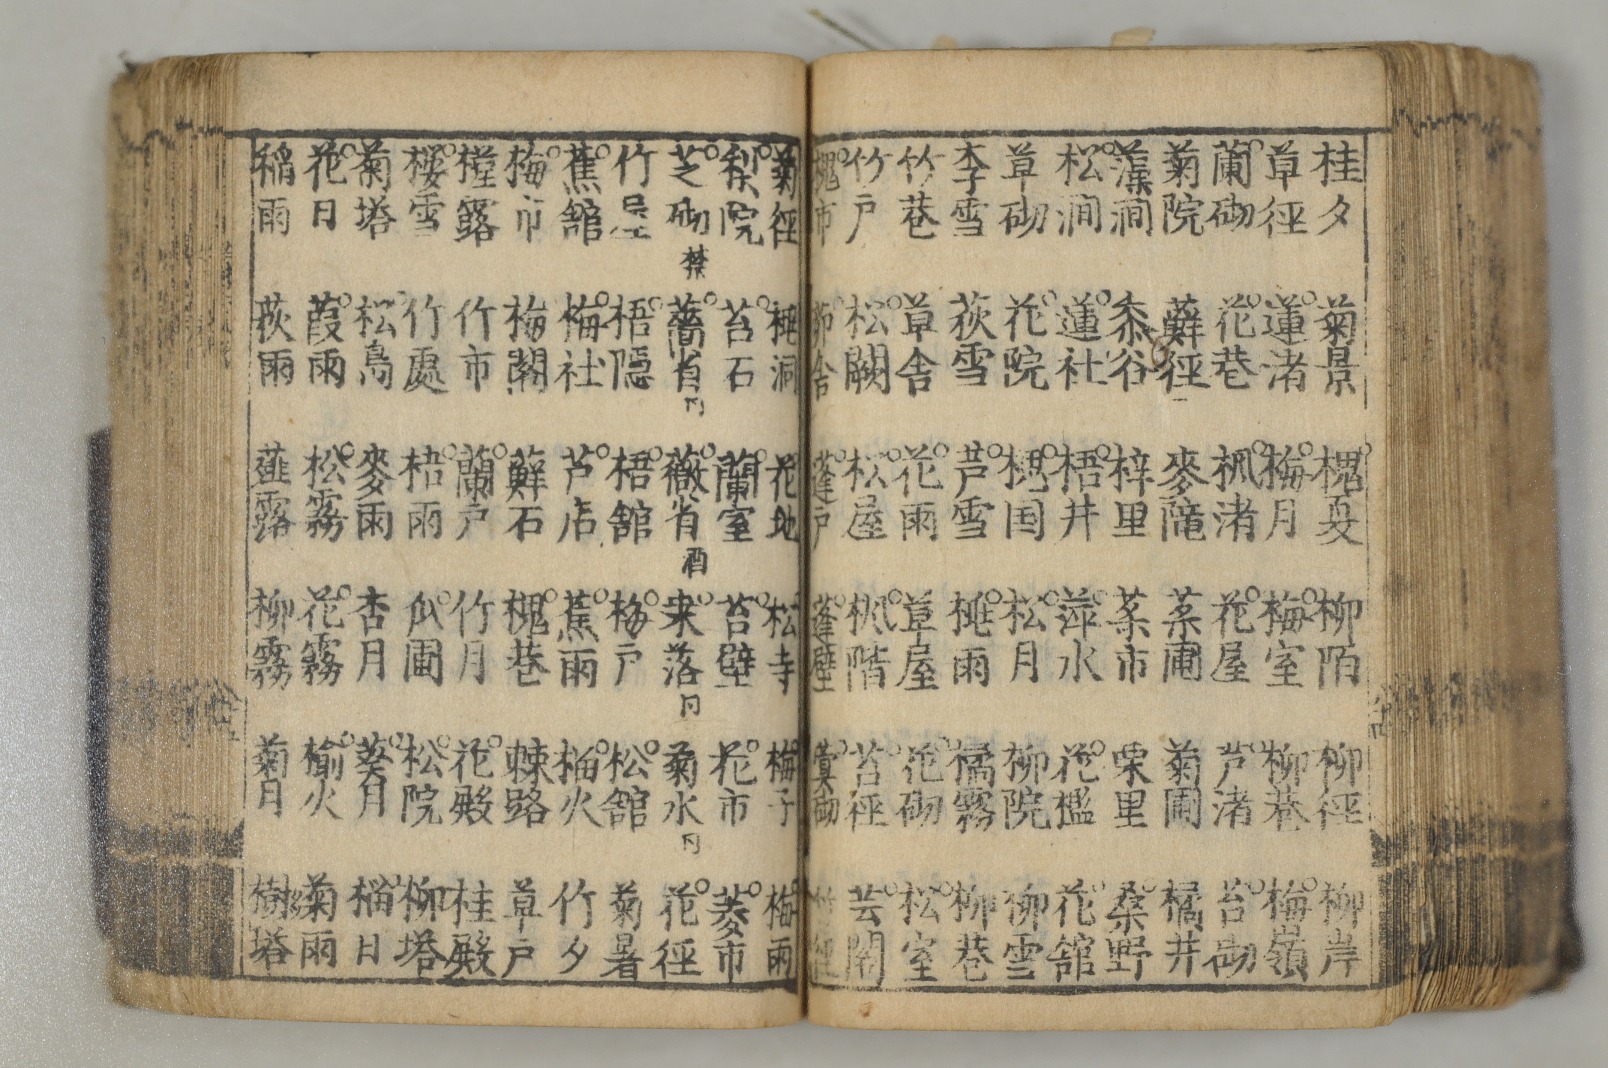 桂夕 菊景 槐夏 柳陌 柳徑 柳岸
草徑 蓮渚 梅月 梅室 柳巷 梅嶺
蘭砌 花巷 楓渚 花屋 芦渚 苔砌
菊院 蘚徑 麥隴 菜圃 菊圃 橘井
藻澗 黍谷 梓里 菜市 栗里 桑野
松澗 蓮社 梧井 萍水 花檻 花舘
草砌 花院 槐国 松月 柳院 柳雪
李雪 荻雪 芦雪 桃雨 橘霧 柳巷
竹巷 草舍 花雨 草屋 花砌 松室
竹戸 松闕 松屋 楓階 苔徑 芸閣
槐市 茆舍 蓬戸 蓬壁 蓂砌 竹徑
菊徑 桃洞 花地 松寺 梅子 梅雨
梨院 苔石 蘭室 苔壁 花市 菱市
芝砌禁 薔省内 薇省酒 来落 菊水 花徑
竹屋 梧隠 梧舘 梅戸 松舘 菊暑
蕉舘 梅社 芦店 蕉雨 榴火 竹夕
梅市 梅閣 蘚石 槐巷 棘路 草戸
橙露 竹市 蘭戸 竹月 花殿 桂殿
櫻雪 竹處 梧雨 瓜圃 松院 柳塔
菊塔 松島 麥雨 杏月 葵月 榴日
花日 葭雨 松霧 花霧 榆火 菊雨
稲雨 荻雨 薤露 柳霧 菊月 樹塔